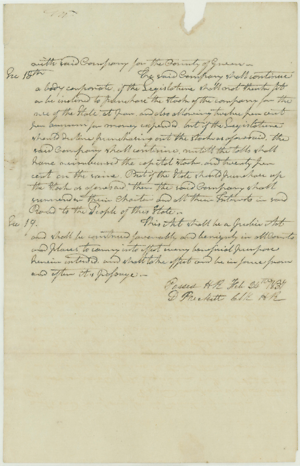 with said Company for the County of Greene.
Sec 18th The said Company shall continue
a body corporate, if the Legislature shall not think fit
to be inclined to purchase the Stock of the company for the
use of the State at par, and also allowing twelve per cent
per annum for money expended but if the Legislature
should decline purchasing out the Stock as aforesaid, the
said Company shall continue, untill the tolls shall
have reimbursed the capital Stock and twenty per
cent on the same. But if the State should purchase up
the Stock as aforesaid then the said Company shall
surrender their Charter and all their interests in said
Road to the People of this State.
Sec 19. This Act shall be a Public Act
and shall be construed favourably and benignly in all Courts
and places to carry into effect every beneficial purpose
herein intended and shall take effect and be in force from
and after its passage.
Passed H.R. Feb
D Prickett Clk H.R